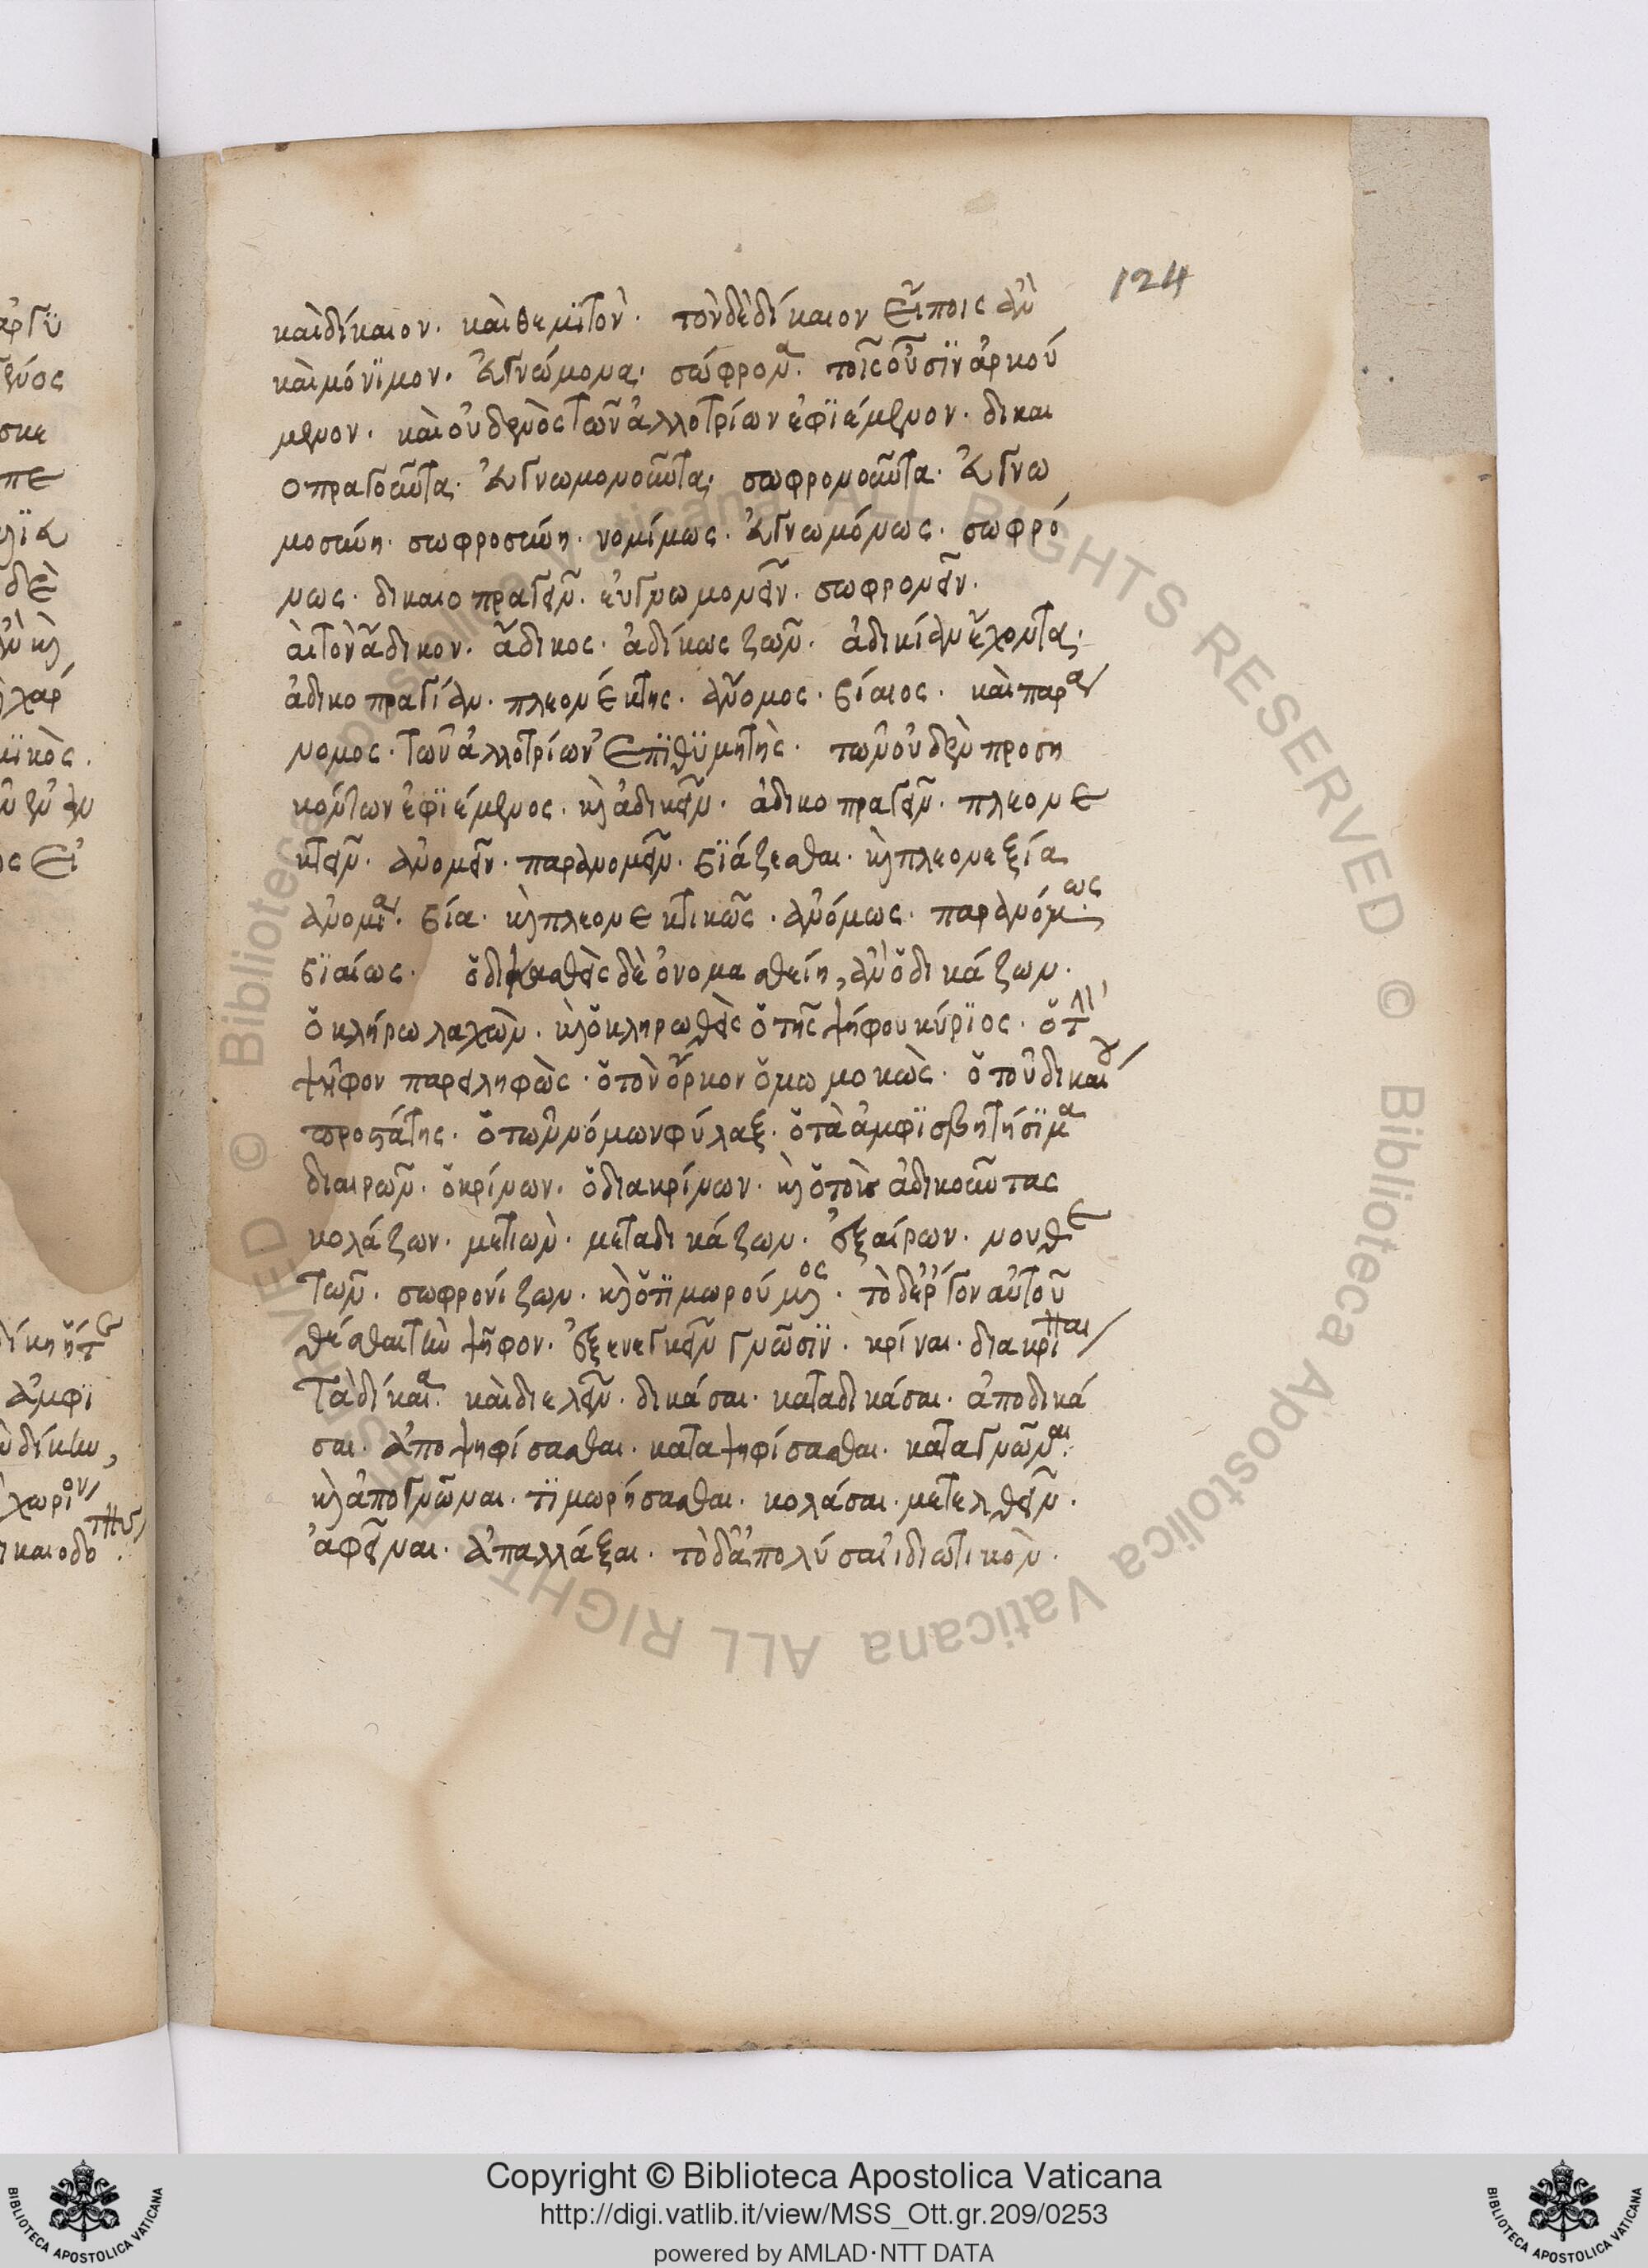 124
καὶ δίκαιον· καὶ θεμϊτὸν· τὸν δὲ δίκαιον εἴποις ἂν
καὶ μόνϊμον· εὐγνώμονα· σώφρονα· τοῖς οὖσϊν ἀρκού
μενον· καὶ οὐδενὸς τῶν ἀλλοτρίων ἐφϊέμενον· δικαι
οπραγοῦντα· εὐγνωμονοῦντα· σωφρονοῦντα· εὐγνω
μοσύνη· σωφροσύνη· νομίμως· εὐγνωμόνως· σωφρό
νως· δικαιοπραγεῖν· εὐγνωμονεῖν· σωφρονεῖν·
τὸν ἄδικον· ἄδικος· ἀδίκως ζῶν· ἀδικίαν ἔχοντα·
ἀδικοπραγίαν· πλεονέκτης· ἄνομος· βίαιος· καὶ παρά
νομος· τῶν ἀλλοτρίων ἐπϊθϋμητὴς· τῶν οὐδὲν προση
κόντων ἐφϊέμενος· καὶ ἀδικεῖν· ἀδικοπραγεῖν· πλεονε
κτεῖν· ἀνομεῖν· παρανομεῖν· βϊάζεσθαι· καὶ πλεονεξία
ἀνομία· βία· καὶ πλεονεκτικῶς· ἀνόμως· παρανόμως
βϊαίως· ὁ δικασθεὶς δὲ ὀνομασθείη, ἂν ὁ δικάζων·
ὁ κλήρω λαχὼν· καὶ ὁ κληρωθεὶς ὁ τῆς ψήφου κύρϊος· ὁ τὴν
ψῆφον παρειληφὼς· ὁ τὸν ὅρκον ὀμωμοκὼς· ὁ τοῦ δικαίου
προστάτης· ὁ τῶν νόμων φύλαξ· ὁ τὰ ἀμφϊσβητήσϊμα
διαιρῶν· ὁ κρίνων· ὁ διακρίνων· καὶ ὁ τοὺς ἀδικοῦντας
κολάζων· μετιὼν· μεταδικάζων· ἐξαίρων· νουθε
τῶν· σωφρονίζων· καὶ ὁ τϊμωρούμενος· τὸ δ' ἔργον αὐτοῦ
θέσθαι τὴν ψῆφον· ἐξενεγκεῖν γνῶσϊν· κρίναι· διακρῖναι
τὰ δίκαια· καὶ διελεῖν· δικάσαι· καταδικάσαι· ἀποδικά
σαι· ἀποψηφίσασθαι· καταψηφίσασθαι· καταγνῶναι·
καὶ ἀπογνῶναι· τϊμωρήσασθαι· κολάσαι· μετελθεῖν·
ἀφεῖναι· ἀπαλλάξαι· τὸ δ' ἀπολύσαι ἰδιωτικὸν·
Copyright © Biblioteca Apostolica Vaticana
http://digi.vatlib.it/view/MSS_Ott.gr.209/0253
powered by AMLAD·NTT DATA